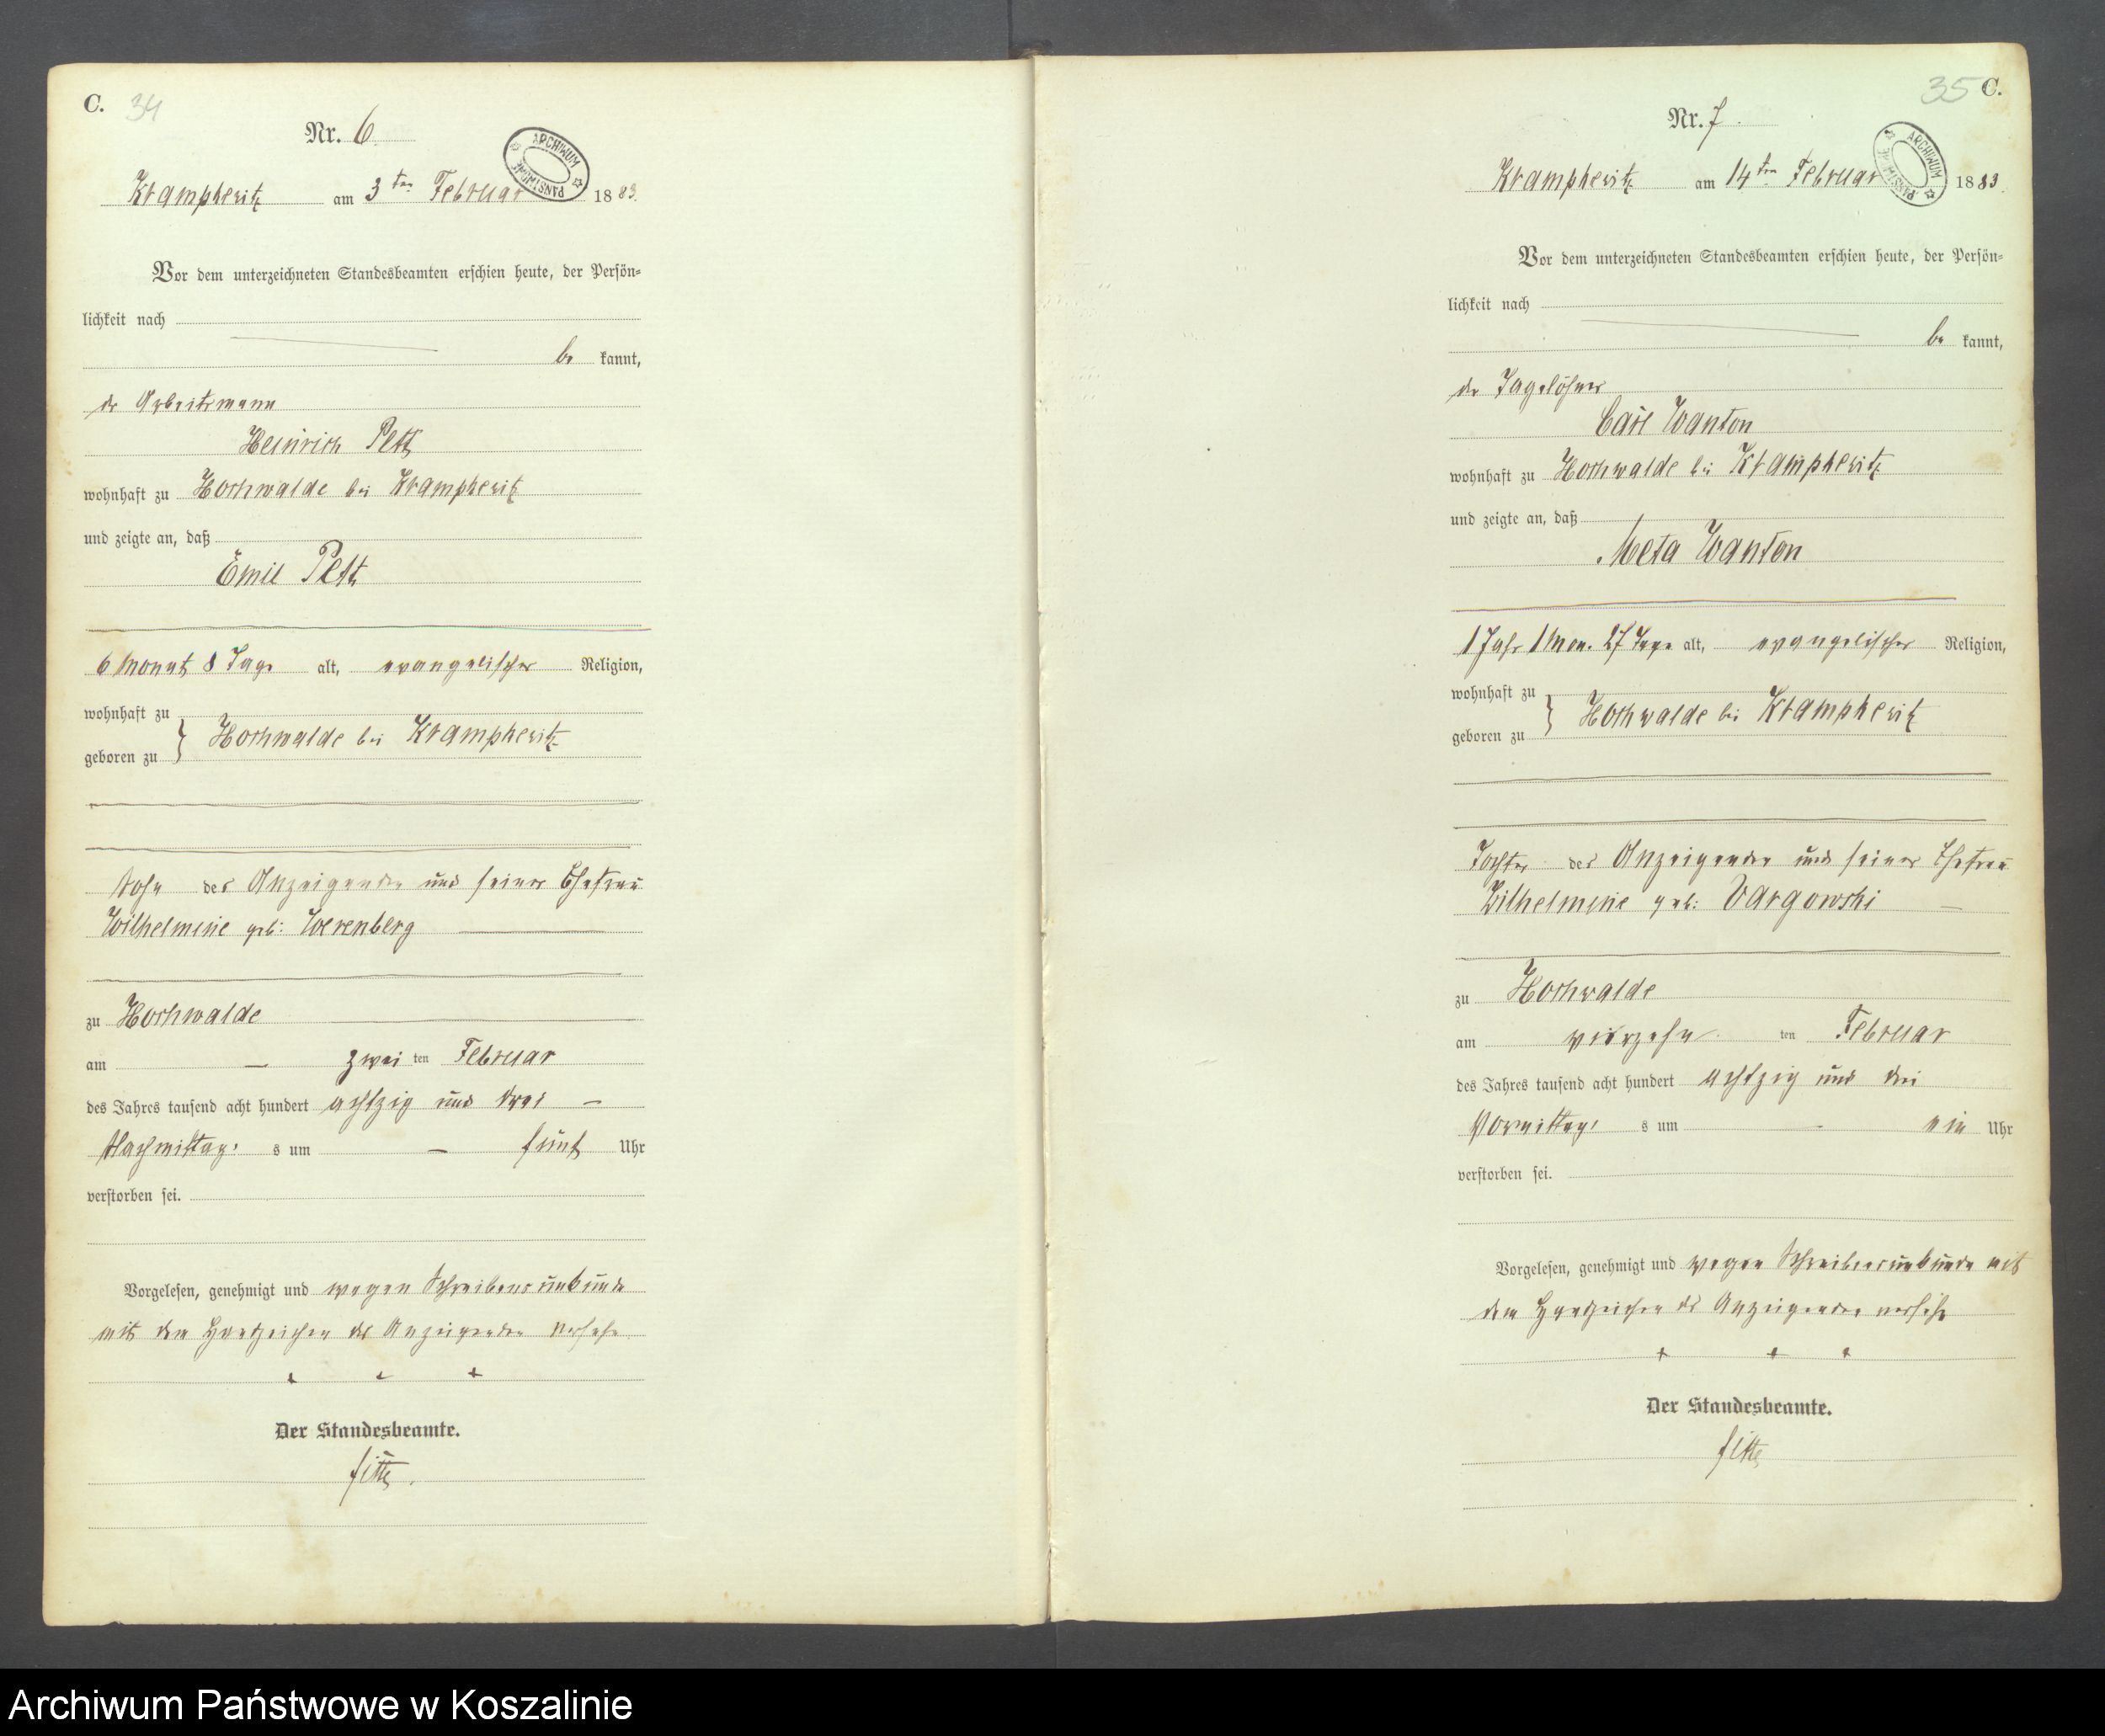 C. 34
Nr. 6
ARCHIWUM PAŃSTWOWE
Krampkewitz am 3ten Februar 1883.
Vor dem unterzeichneten Standesbeamten erschien heute, der Persön-
lichkeit nach
be kannt,
der Arbeitsmann
Heinrich Pett
wohnhaft zu Hochwalde bei Krampkewitz
und zeigte an, daß
Emil Pett
6 Monat 8 Tage alt, evangelischer Religion,
wohnhaft zu
geboren zu } Hochwalde bei Krampkewitz
Sohn des Anzeigenden und seiner Ehefrau
Wilhelmine geb: Werenberg
zu Hochwalde
am zwei ten Februar
des Jahres tausend acht hundert achtzig und drei
Nachmittag s um fünf Uhr
verstorben sei.
Vorgelesen, genehmigt und wegen Schreibensunkunde
mit dem Handzeichen des Anzeigenden versehen
+ + +
Der Standesbeamte.
35 C.
Nr. 7.
ARCHIWUM PAŃSTWOWE
Krampkewitz am 14ten Februar 1883.
Vor dem unterzeichneten Standesbeamten erschien heute, der Persön-
lichkeit nach
be kannt,
der Tagelöhner
Carl Wanton
wohnhaft zu Hochwalde bei Krampkewitz
und zeigte an, daß
Meta Wanton
1 Jahr 1 Mon. 27 Tage alt, evangelischer Religion,
wohnhaft zu
geboren zu } Hochwalde bei Krampkewitz
Tochter des Anzeigenden und seiner Ehefrau
Wilhelmine geb: Vargowski
zu Hochwalde
am vierzehn ten Februar
des Jahres tausend acht hundert achtzig und drei
Vormittag s um ein Uhr
verstorben sei.
Vorgelesen, genehmigt und wegen Schreibensunkunde mit
dem Handzeichen des Anzeigenden versehen
+ + +
Der Standesbeamte.
Archiwum Państwowe w Koszalinie